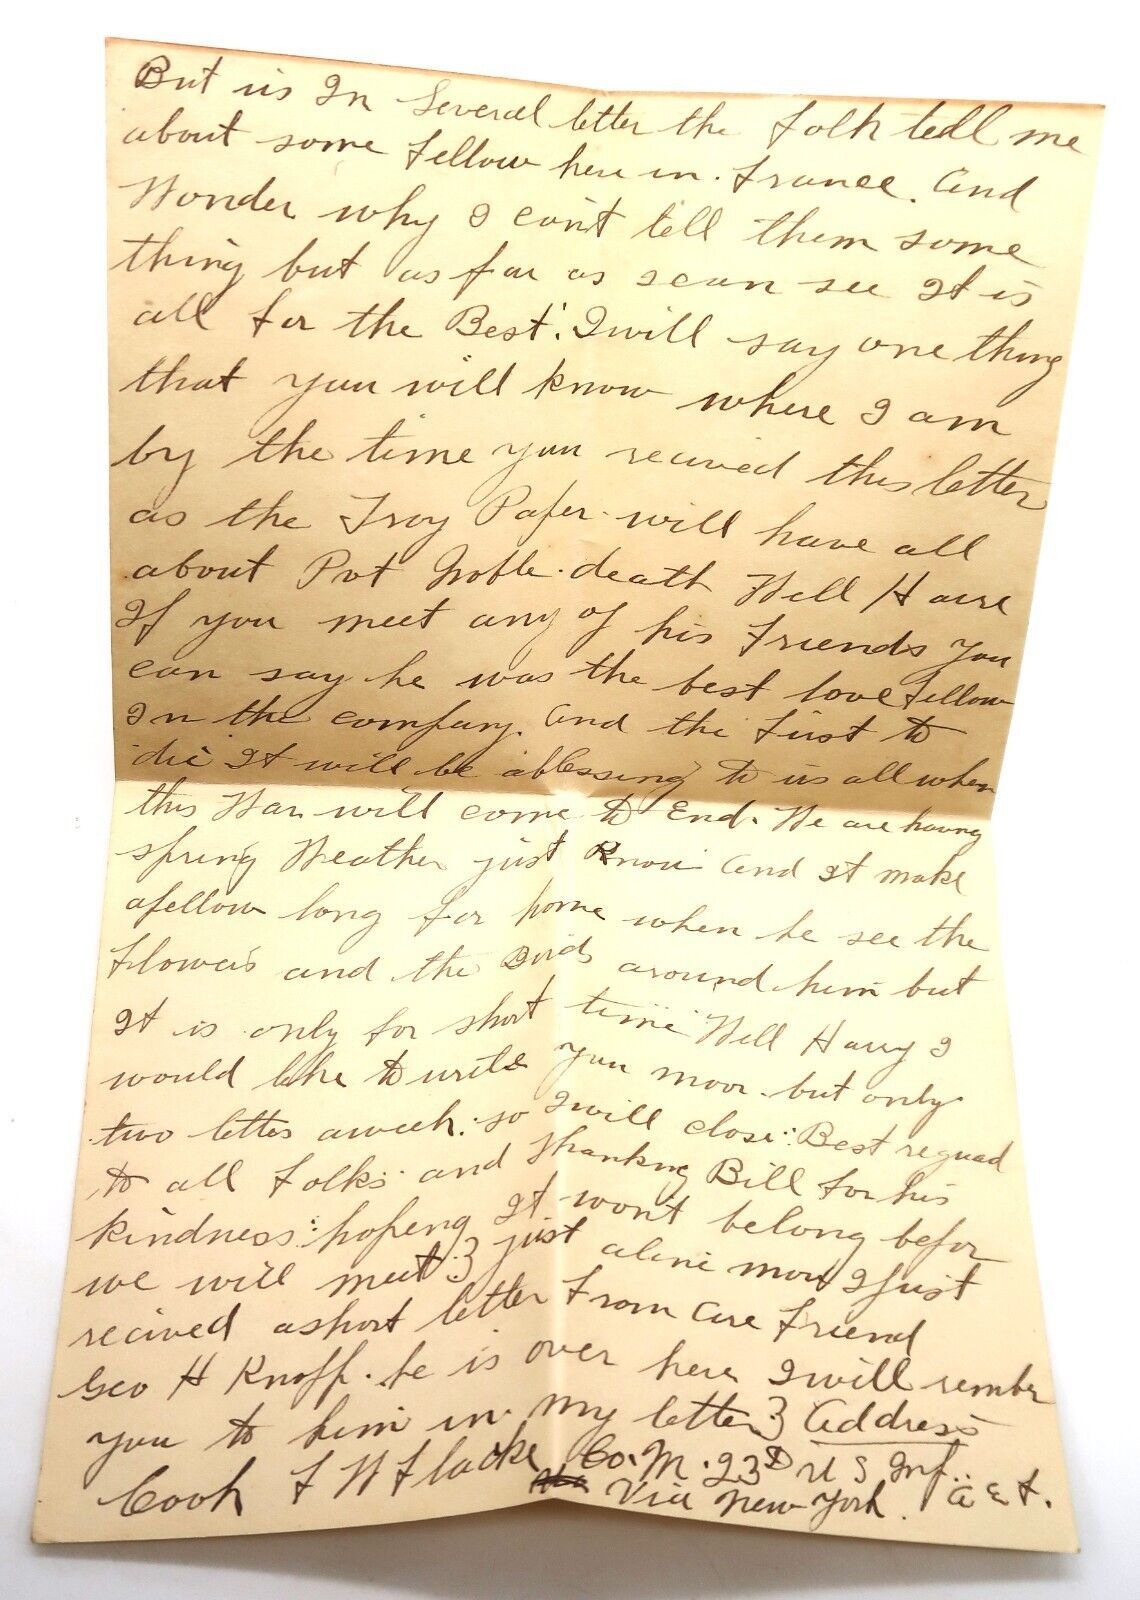 But us In Several letter the folk tell me
about some fellow here in. France. and
Wonder why I cont tell them some
thing but as far as I can see It is
all for the Best. I will say one thing
that you will know where I am
by the time you recived this letter
as the Troy Paper will have all
about Pvt death Well Harre
If you meet any of his Friends you
can say he was the best love fellow
In the company. And the First to
die It will be ablessing to us all when
this War will come to End. We are having
spring Weather just Know and It make
afellow long for home when he see the
flowers and the Birds around him but
It is only for short time Well Harry I
would like to write you moor but only
two letter aweek: so I will close: Best reguad
to all Folks and thanking Bill for his
kindness: hopeng It wont belong befor
we will meet just aline more I just
recived ashort letter From are Friend
Geo H Knoff. he is over here I will rember
you to him in my letter Address
Cook F W Co. M. 23D U S Inf. A E F.
Via New York.